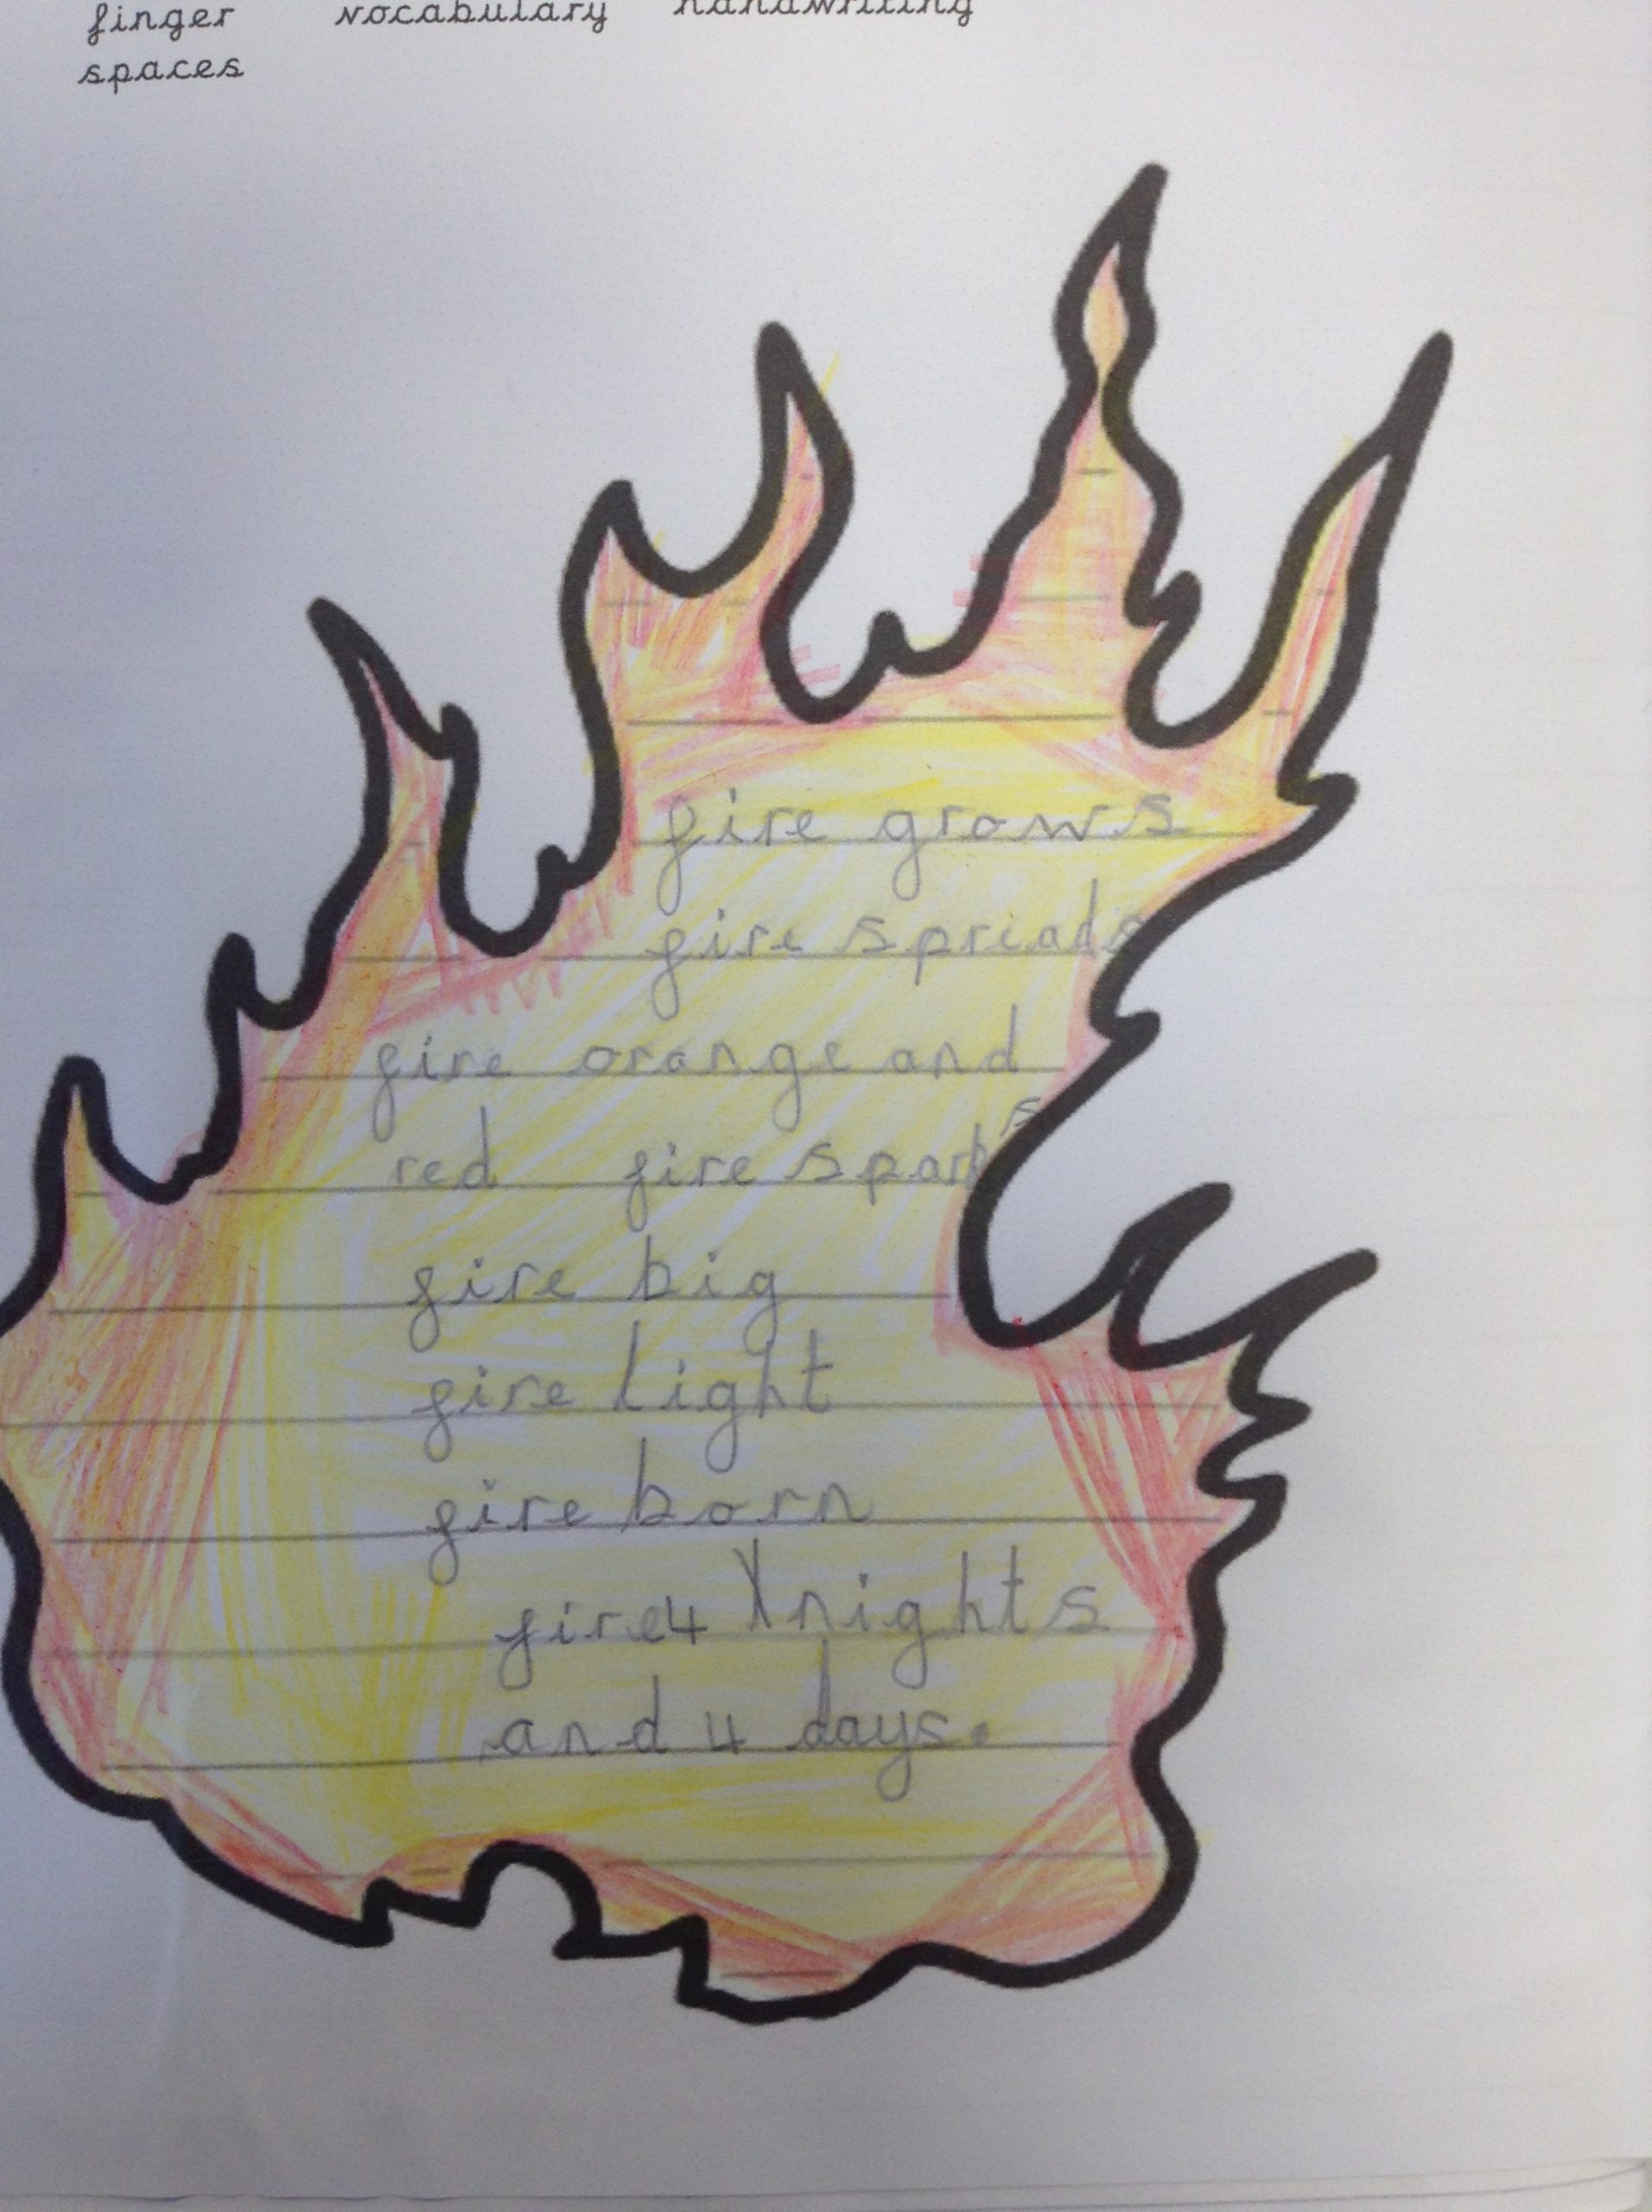 finger vocabulary handwriting
spaces
fire grows
fire spreads
fire orange and
red fire sparks
fire big
fire light
fire born
fire 4 nights
and 4 days.